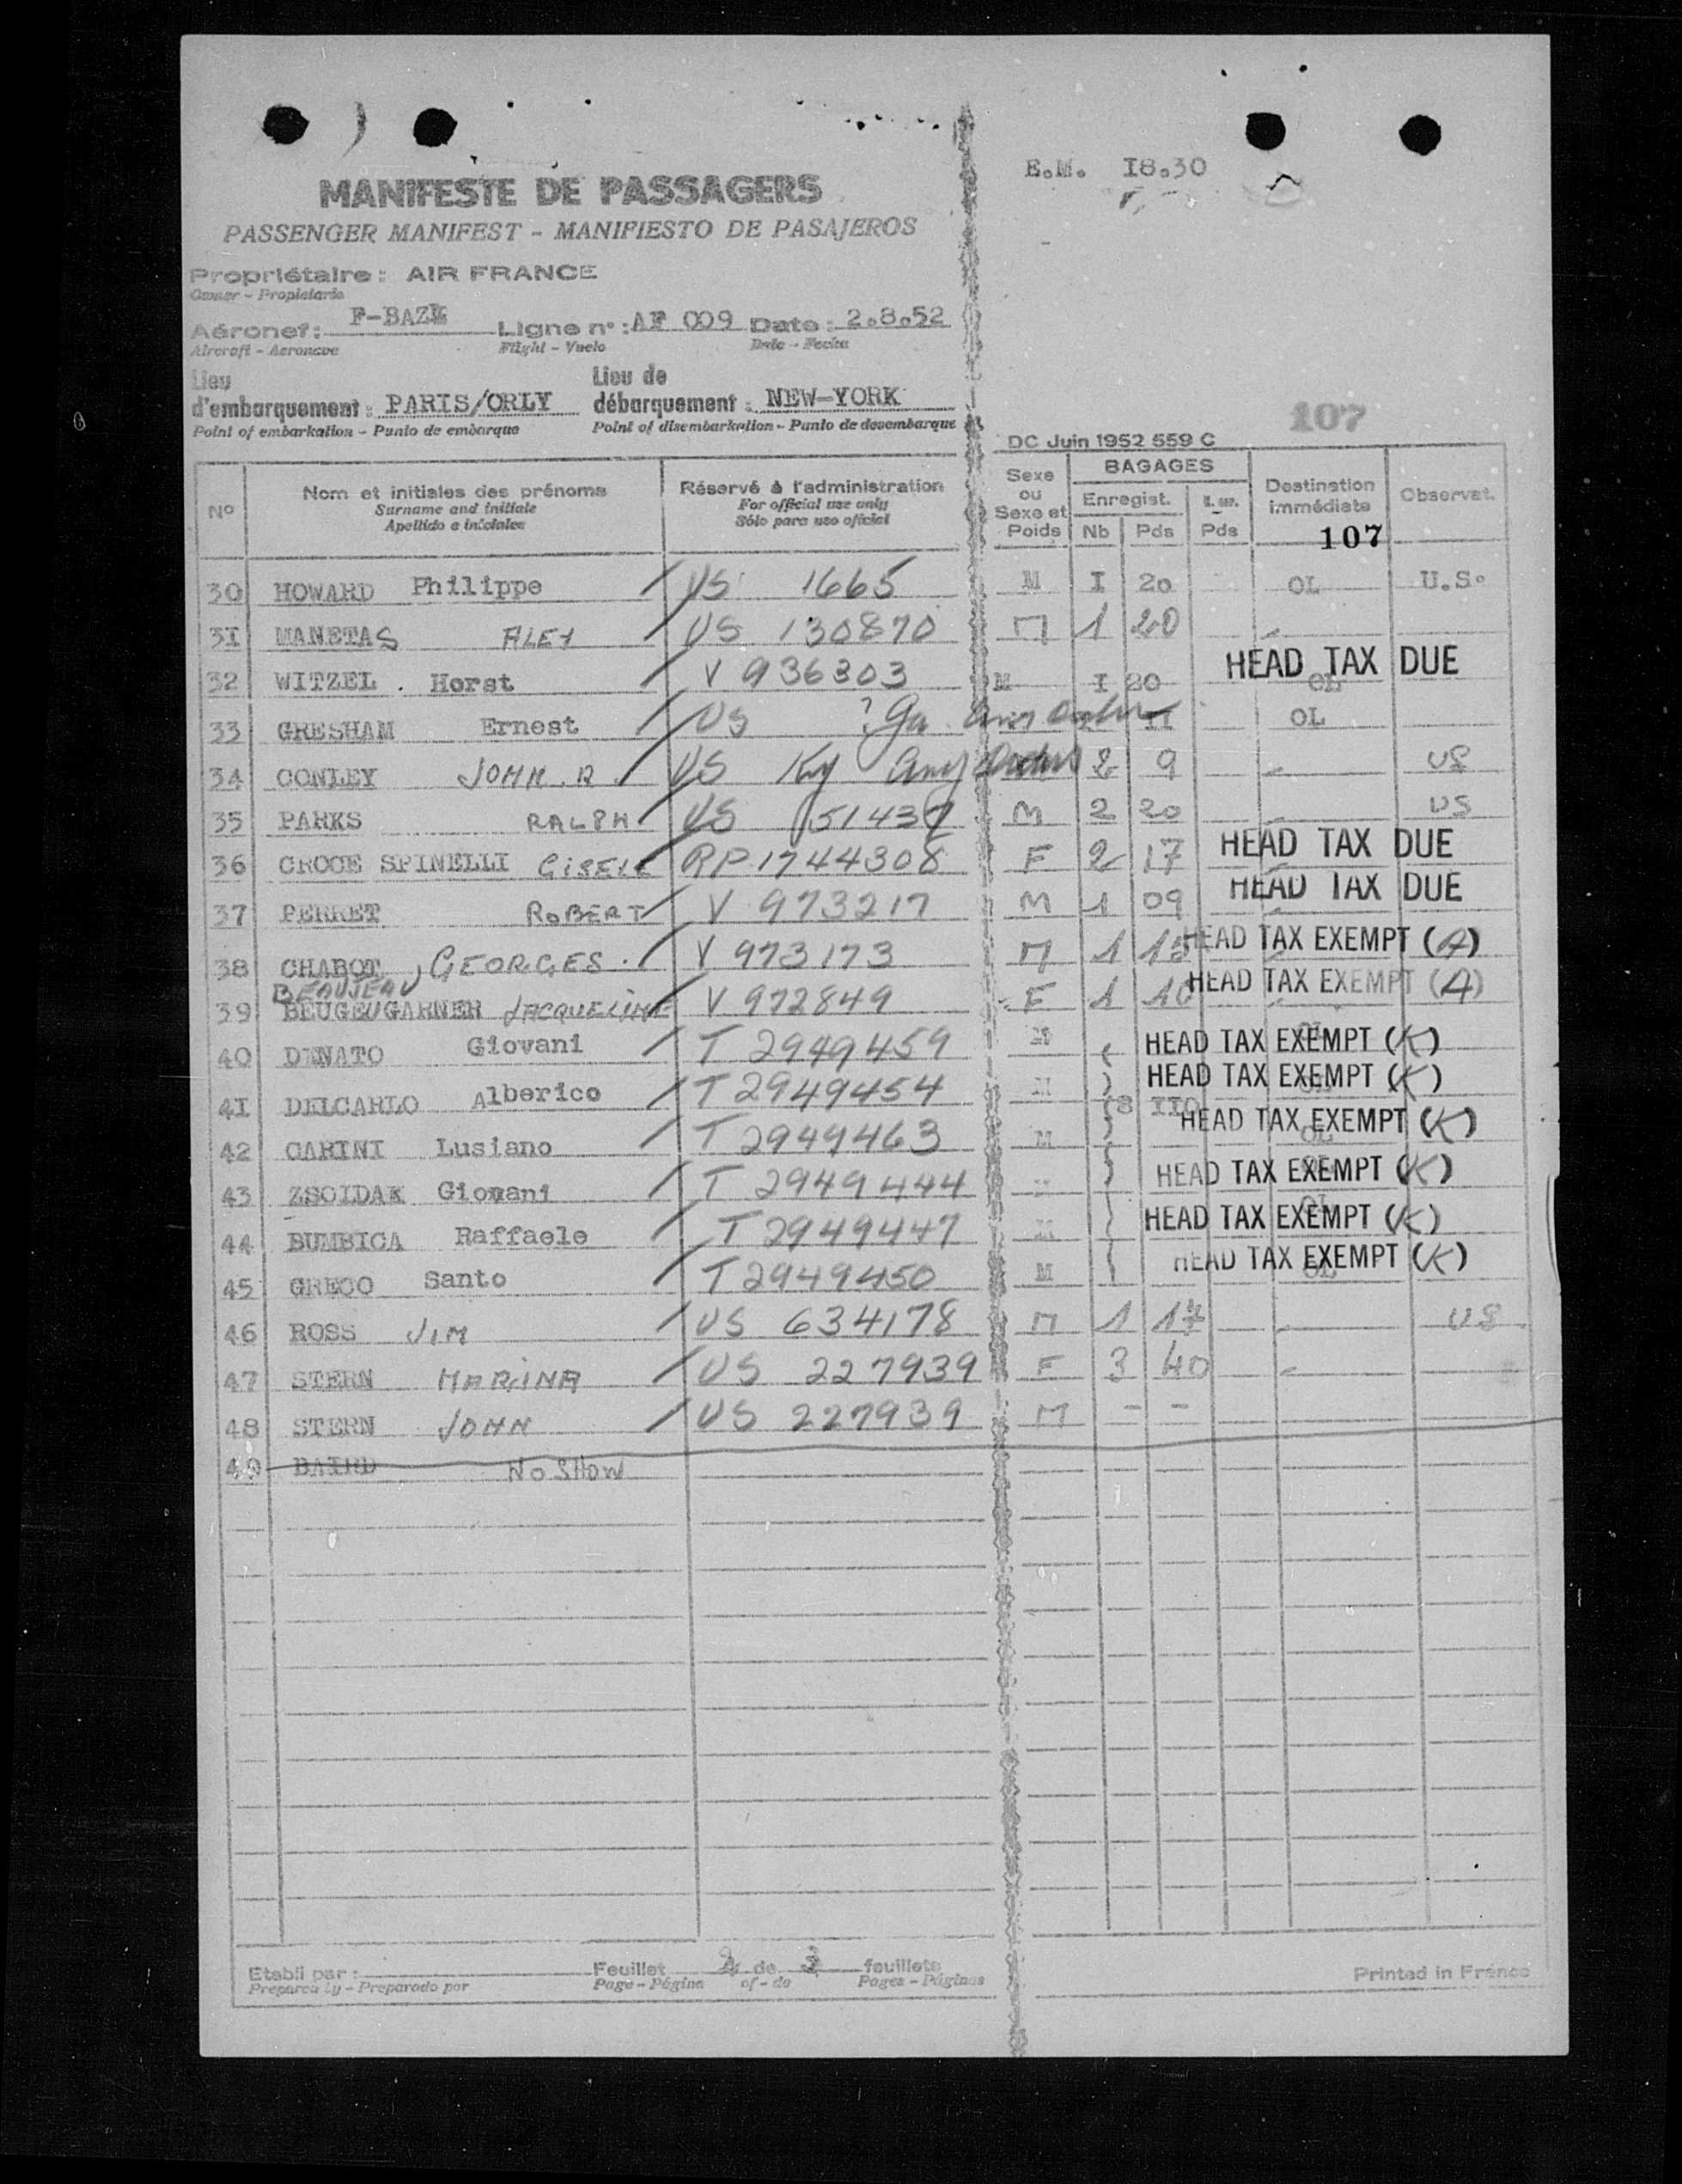 E.M. I8.30
MANIFESTE DE PASSAGERS
PASSENGER MANIFEST - MANIFIESTO DE PASAJEROS
Propriétaire : AIR FRANCE
Owner - Propietario
Aéronef : Ligne n° : AF 009 Date : 2.8.52
Aircraft - Aeronave Flight - Vuelo Date - Fecha
Lieu d'embarquement : PARIS/ORLY Lieu de débarquement : NEW-YORK
Point of embarkation - Punto de embarque Point of disembarkation - Punto de desembarque
107
DC Juin 1952 559 C
N° Nom et initiales des prénoms Réservé à l'administration Sexe ou Sexe et Poids BAGAGES Destination immédiate Observat.
Surname and initials For official use only Enregist.
Apellido e iniciales Sólo para uso oficial Nb Pds Pds 107
30 HOWARD Philippe US 1665 M I 20 OL U.S.
3I MANETAS ALEX US 130870 M 1 20
32 WITZEL . Horst V 936303 M I 20 OL HEAD TAX DUE
33 GRESHAM Ernest US ? Ga OL
34 CONLEY JOHN.R US Ky 2 9 US
35 PARKS RALPH US M 2 20 US
36 CROCE SPINELLI GISELE RP 1744308 F 2 17 HEAD TAX DUE
37 PERRET ROBERT V 973217 M 1 09 HEAD TAX DUE
38 CHABOT, GEORGES. V 973173 M 1 15 HEAD TAX EXEMPT (A)
BEAUJEAU
39 BEUGEUGARNER JACQUELINE V 972849 F 1 10 HEAD TAX EXEMPT (A)
40 DENATO Giovani T 2949459 M HEAD TAX EXEMPT (K)
4I DELCARLO Alberico T 2949454 M HEAD TAX EXEMPT (K)
8 IIO
42 CARINI Lusiano T 2949463 M OL HEAD TAX EXEMPT (K)
43 ZSOIDAK Giovani T 2949444 HEAD TAX EXEMPT (K)
44 BUMBICA Raffaele T 2949447 M OL HEAD TAX EXEMPT (K)
45 GRECO Santo T 2949450 M OL HEAD TAX EXEMPT (K)
46 ROSS JIM US 634178 M 1 17 US
47 STERN MARINA US 227939 F 3 40
48 STERN JOHN US 227939 M - -
49 BAIRD NO SHOW
Etabli par : Feuillet 2 de 3 feuillets Printed in France
Prepared by - Preparado por Page - Página of - de Pages - Páginas